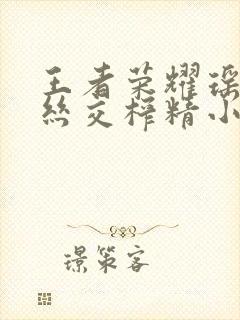 王者荣耀瑶
丝交榨精小
璟策客